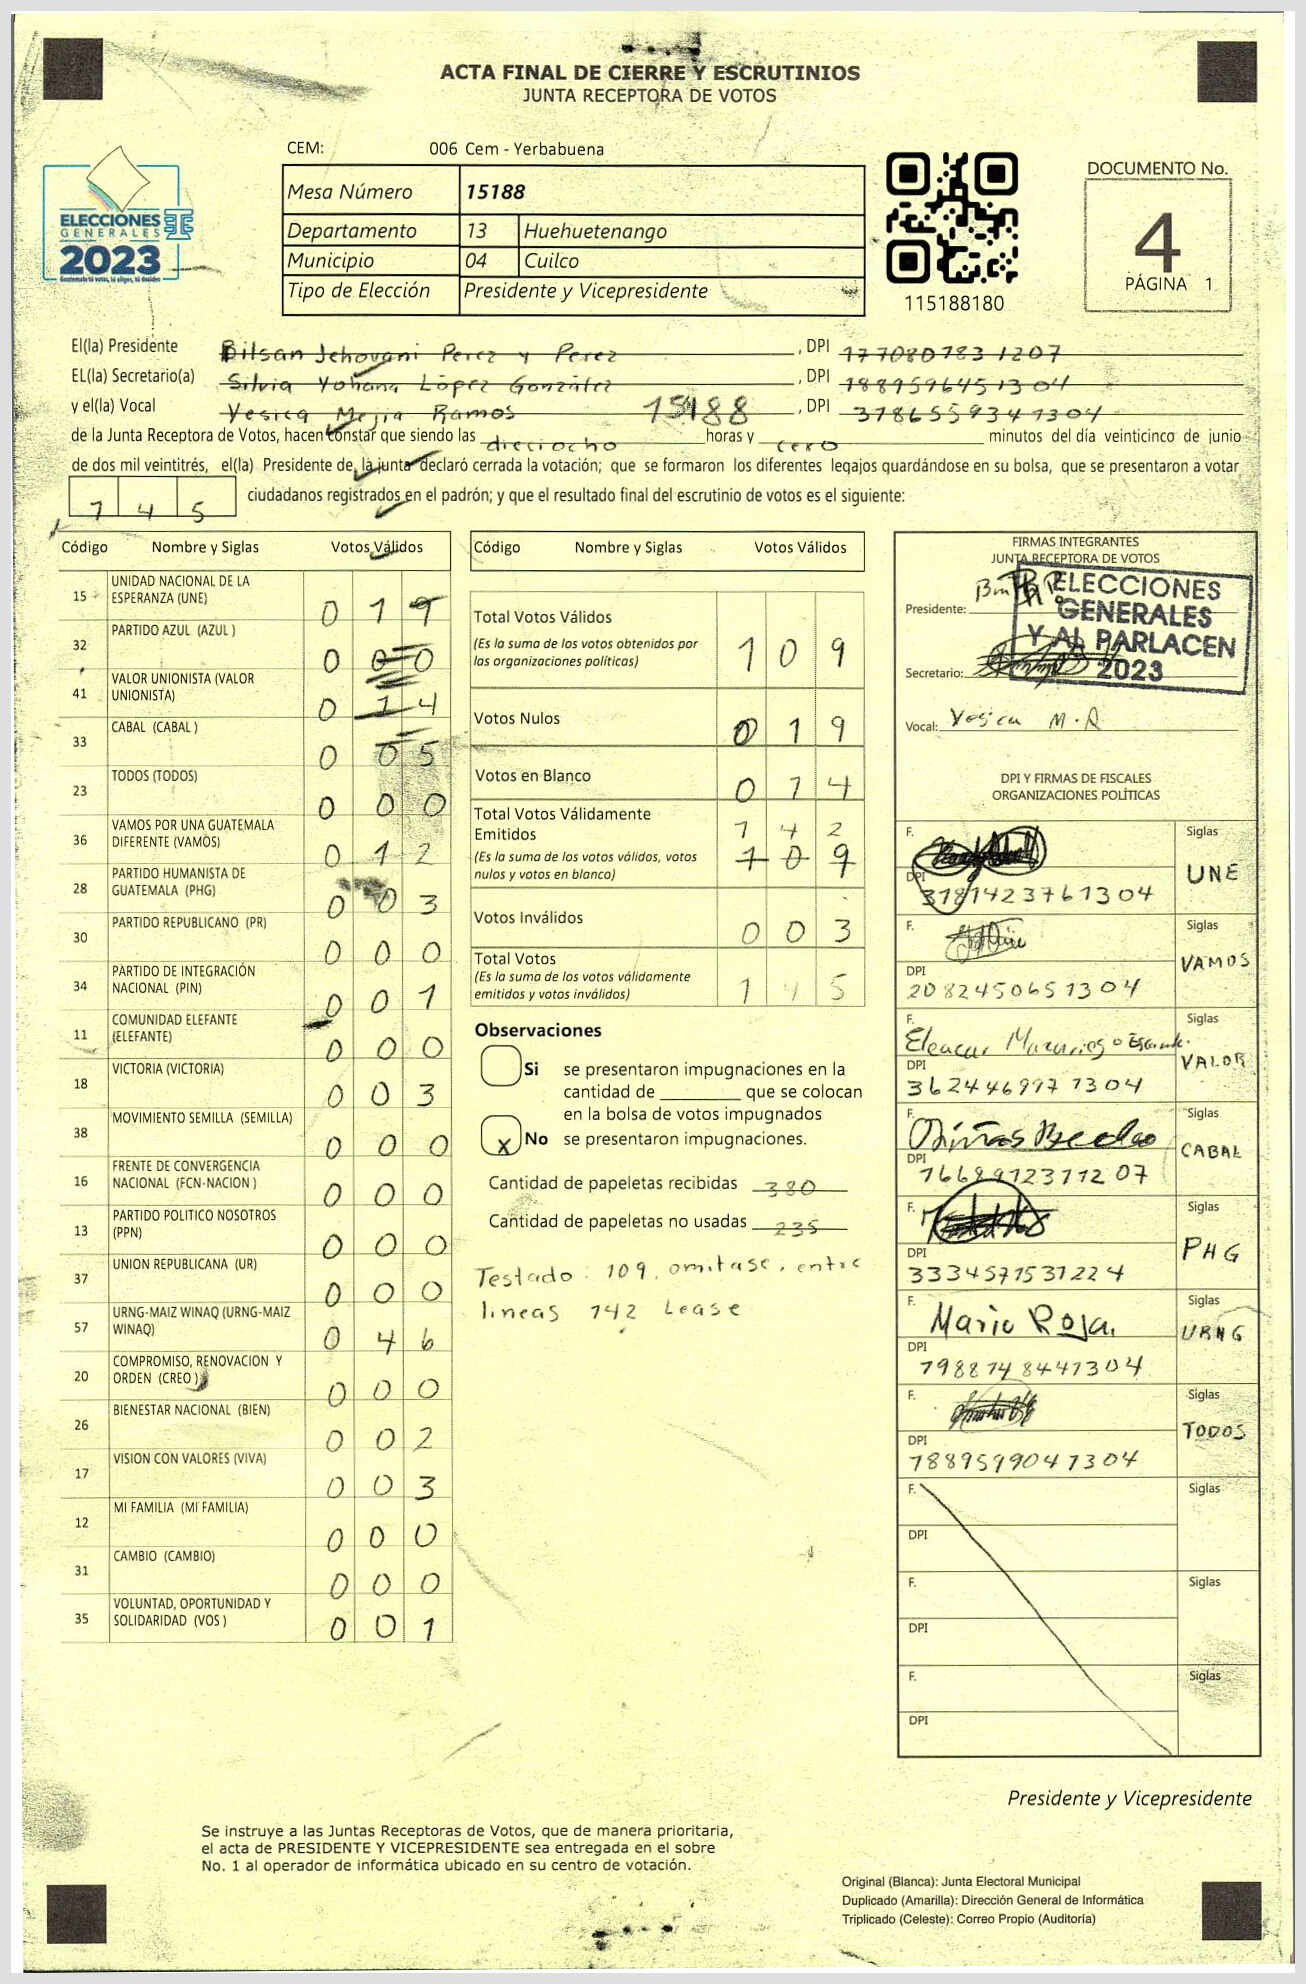 ACTA FINAL DE CIERRE Y ESCRUTINIOS
JUNTA RECEPTORA DE VOTOS
CEM: 006 Cem - Yerbabuena
Mesa Número 15188
Departamento 13 Huehuetenango
Municipio 04 Cuilco
Tipo de Elección Presidente y Vicepresidente
ELECCIONES
GENERALES
2023
115188180
DOCUMENTO No.
4
PÁGINA 1
El(la) Presidente Bilsan Jehovani Perez y Perez , DPI 1770807831207
EL(la) Secretario(a) Silvia Yohana López González , DPI 1889596451304
y el(la) Vocal Yesica Mejia Ramos 15188 , DPI 3786559341304
de la Junta Receptora de Votos, hacen constar que siendo las dieciocho horas y cero minutos del día veinticinco de junio
de dos mil veintitrés, el(la) Presidente de la junta declaró cerrada la votación; que se formaron los diferentes legajos guardándose en su bolsa, que se presentaron a votar
145 ciudadanos registrados en el padrón; y que el resultado final del escrutinio de votos es el siguiente:
Código Nombre y Siglas Votos Válidos
15 UNIDAD NACIONAL DE LA ESPERANZA (UNE) 0 1 9
32 PARTIDO AZUL (AZUL ) 0 0 0
41 VALOR UNIONISTA (VALOR UNIONISTA) 0 1 4
33 CABAL (CABAL ) 0 0 5
23 TODOS (TODOS) 0 0 0
36 VAMOS POR UNA GUATEMALA DIFERENTE (VAMOS) 0 1 2
28 PARTIDO HUMANISTA DE GUATEMALA (PHG) 0 0 3
30 PARTIDO REPUBLICANO (PR) 0 0 0
34 PARTIDO DE INTEGRACIÓN NACIONAL (PIN) 0 0 1
11 COMUNIDAD ELEFANTE (ELEFANTE) 0 0 0
18 VICTORIA (VICTORIA) 0 0 3
38 MOVIMIENTO SEMILLA (SEMILLA) 0 0 0
16 FRENTE DE CONVERGENCIA NACIONAL (FCN-NACION ) 0 0 0
13 PARTIDO POLITICO NOSOTROS (PPN) 0 0 0
37 UNION REPUBLICANA (UR) 0 0 0
57 URNG-MAIZ WINAQ (URNG-MAIZ WINAQ) 0 4 6
20 COMPROMISO, RENOVACION Y ORDEN (CREO ) 0 0 0
26 BIENESTAR NACIONAL (BIEN) 0 0 2
17 VISION CON VALORES (VIVA) 0 0 3
12 MI FAMILIA (MI FAMILIA) 0 0 0
31 CAMBIO (CAMBIO) 0 0 0
35 VOLUNTAD, OPORTUNIDAD Y SOLIDARIDAD (VOS ) 0 0 1
Código Nombre y Siglas Votos Válidos
Total Votos Válidos
(Es la suma de los votos obtenidos por
las organizaciones políticas) 1 0 9
Votos Nulos 0 1 9
Votos en Blanco 0 14
Total Votos Válidamente
Emitidos 1 4 2
(Es la suma de los votos válidos, votos
nulos y votos en blanco) 1 0 9
Votos Inválidos 0 0 3
Total Votos
(Es la suma de los votos válidamente
emitidos y votos inválidos) 1 4 5
Observaciones
Si se presentaron impugnaciones en la
cantidad de ________ que se colocan
en la bolsa de votos impugnados
x No se presentaron impugnaciones.
Cantidad de papeletas recibidas 380
Cantidad de papeletas no usadas 235
Testado: 109, omitase, entre
lineas 142 Lease
FIRMAS INTEGRANTES
JUNTA RECEPTORA DE VOTOS
Presidente:
Secretario:
Vocal: Yesica M. R
ELECCIONES
GENERALES
Y AL PARLACEN
2023
DPI Y FIRMAS DE FISCALES
ORGANIZACIONES POLÍTICAS
F. Siglas
DPI 3181423761304 UNE
F. Siglas
DPI 2082450651304 VAMOS
F. Eleacar Siglas
DPI 3624469971304 VALOR
F. Siglas
DPI 1668912371207 CABAL
F. Siglas
DPI 3334571531224 PHG
F. Mario Rojas Siglas
DPI 1988748441304 URNG
F. Siglas
DPI 1889599041304 TODOS
F. Siglas
DPI
F. Siglas
DPI
F. Siglas
DPI
Presidente y Vicepresidente
Se instruye a las Juntas Receptoras de Votos, que de manera prioritaria,
el acta de PRESIDENTE Y VICEPRESIDENTE sea entregada en el sobre
No. 1 al operador de informática ubicado en su centro de votación.
Original (Blanca): Junta Electoral Municipal
Duplicado (Amarilla): Dirección General de Informática
Triplicado (Celeste): Correo Propio (Auditoría)